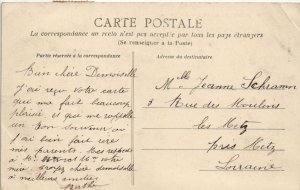 CARTE POSTALE
La correspondance au recto n'est pas acceptée par tous les pays étrangers
(Se renseigner à la Poste)
Partie réservée à la correspondance
Adresse du destinataire
Bien chère Demoiselle
J'ai reçu votre carte
que me fait beaucoup
plaisir et que me rappelle
un bon souvenir ou
j'ai bien fait rire
mes parents. Mes respects
à
chère demoiselle
meilleures amitiés
Melle Jeanne Schramm
3 Rue des Moulins
les Metz
près Metz
Lorraine